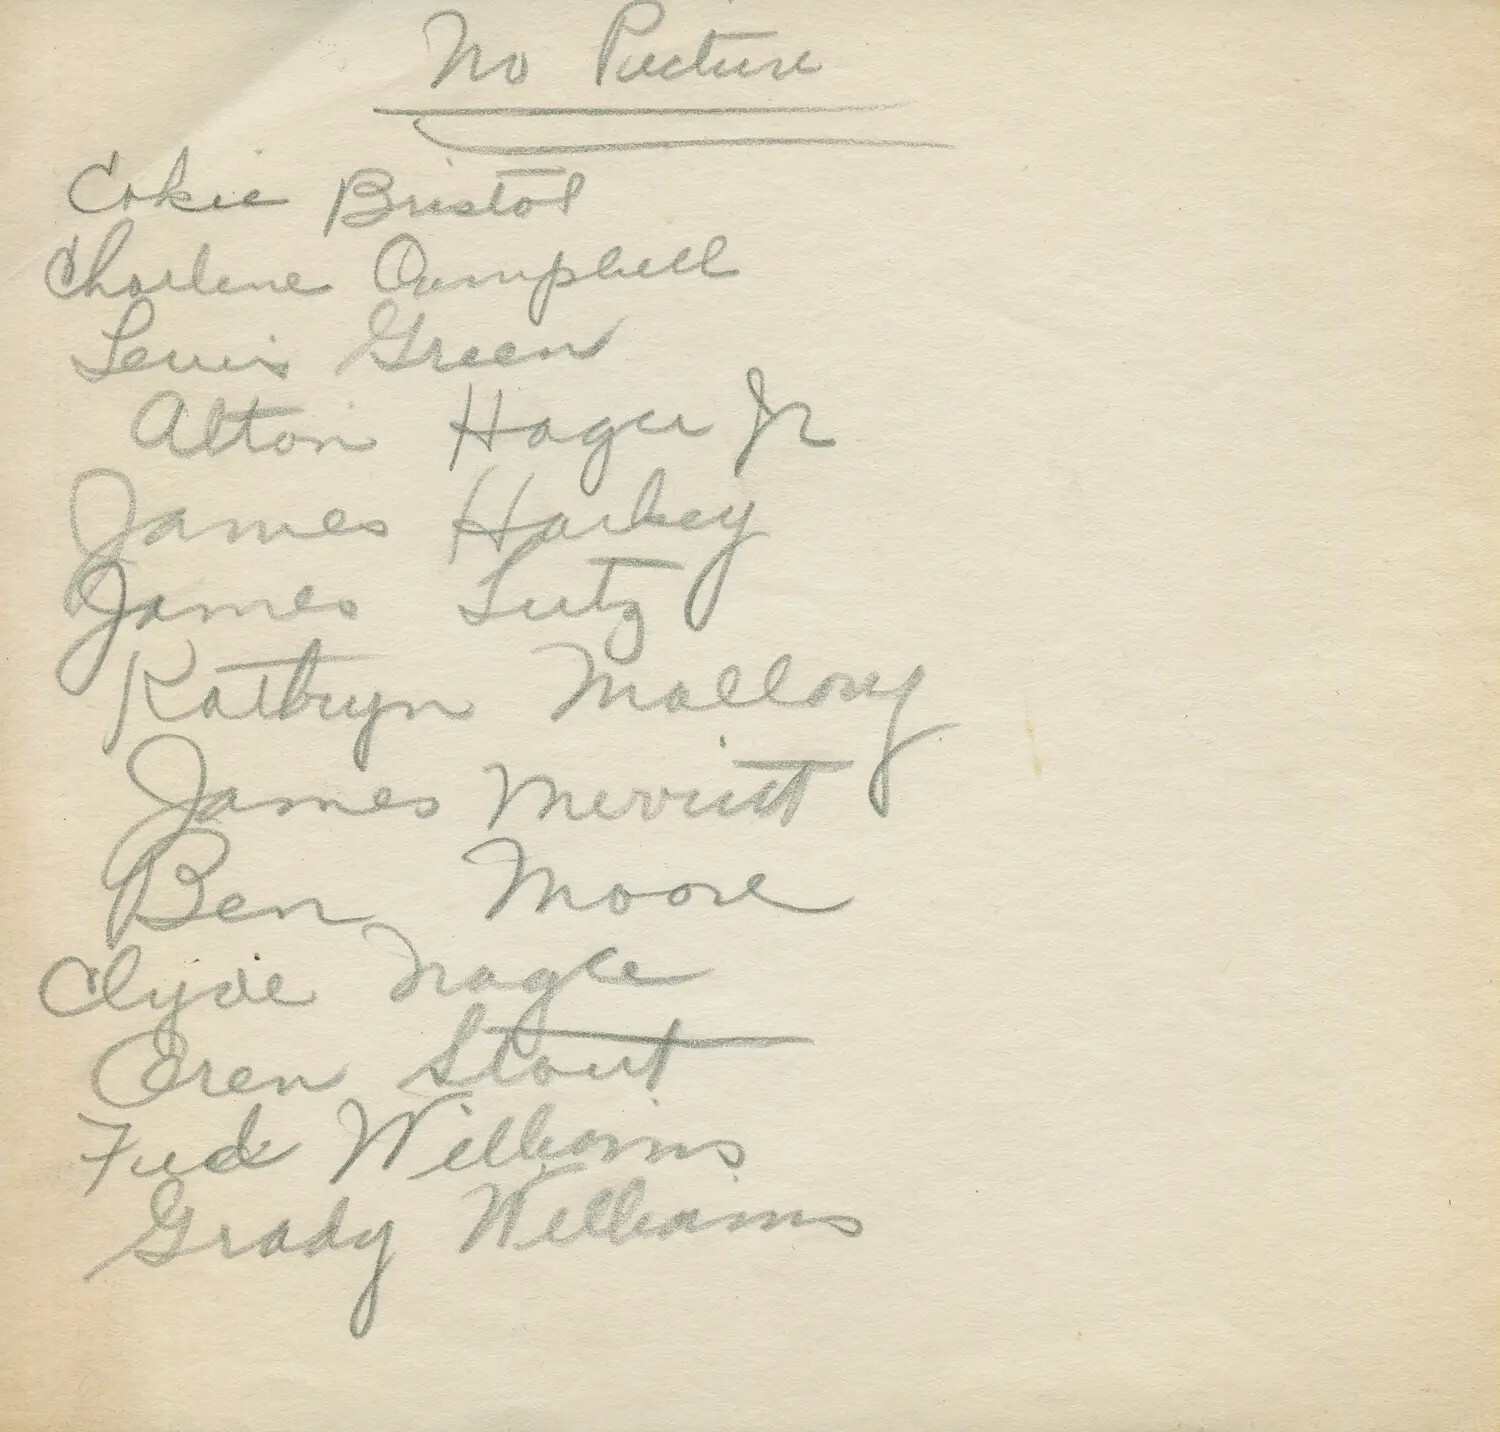 No Picture
Cokie Bristol
Charlene Campbell
Lewis Green
Alton Hager Jr
James Harkey
James Lutz
Kathryn Mallory
James Merritt
Ben Moore
Clyde Nagle
Oren Stout
Fred Williams
Grady Williams